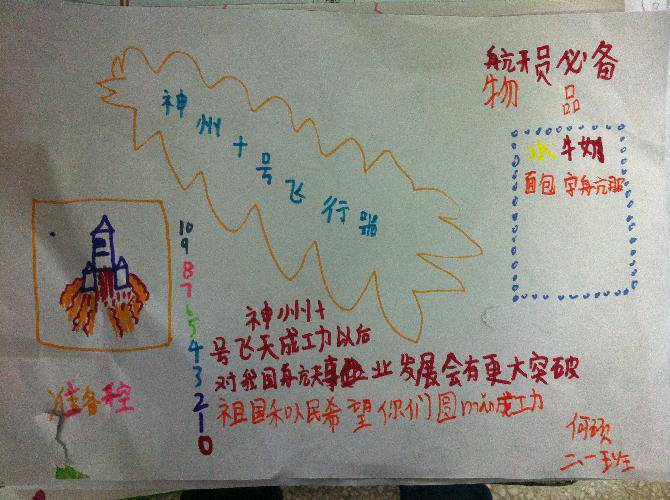 航天员必备
物品
神州十号飞行器
水 牛奶
面包 宇航服
10
9
8
7
6
5
4
3
2
1
0
准备
神州十
号飞天成功以后
对我国航天事业发展会有更大突破
祖国和人民希望你们圆mǎn成功
二一班